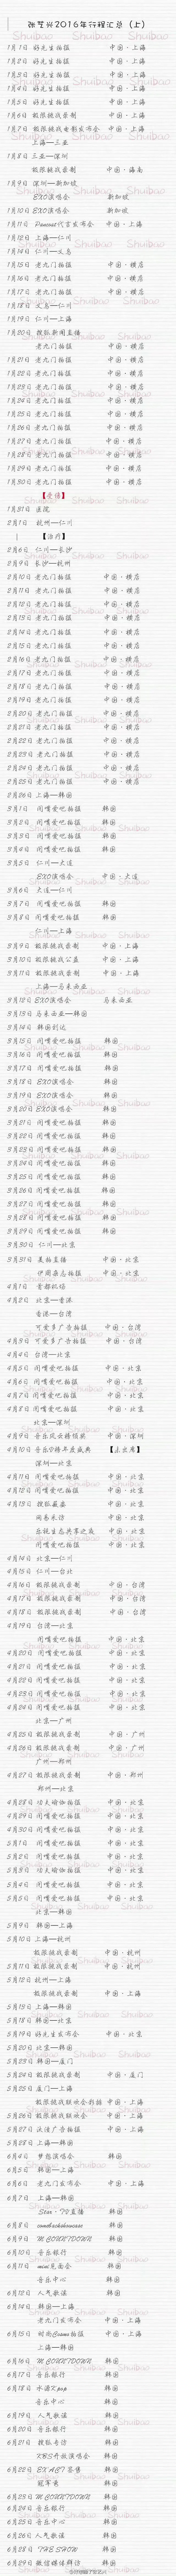 张艺兴2016年行程汇总（上）
1月1日 好先生拍摄 中国·上海
1月2日 好先生拍摄 中国·上海
1月3日 好先生拍摄 中国·上海
1月4日 好先生拍摄 中国·上海
1月5日 好先生拍摄 中国·上海
1月6日 极限挑战录制 中国·上海
1月7日 极限挑战电影发布会 中国·上海
上海—三亚
1月8日 三亚—深圳
极限挑战录制 中国·海南
1月9日 深圳—新加坡
EXO演唱会 新加坡
1月10日 EXO演唱会 新加坡
1月12日 上海—仁川
1月15日 老九门拍摄 中国·横店
1月16日 老九门拍摄 中国·横店
1月17日 老九门拍摄 中国·横店
1月19日 仁川—上海
1月20日 搜狐新闻直播
老九门拍摄 中国·横店
1月21日 老九门拍摄 中国·横店
1月22日 老九门拍摄 中国·横店
1月23日 老九门拍摄 中国·横店
1月24日 老九门拍摄 中国·横店
1月25日 老九门拍摄 中国·横店
1月26日 老九门拍摄 中国·横店
1月27日 老九门拍摄 中国·横店
1月28日 老九门拍摄 中国·横店
1月29日 老九门拍摄 中国·横店
1月30日 老九门拍摄 中国·横店
【受伤】
1月31日 医院
2月1日 杭州—仁川
【治疗】
2月6日 仁川—长沙
2月9日 长沙—杭州
2月10日 老九门拍摄 中国·横店
2月11日 老九门拍摄 中国·横店
2月12日 老九门拍摄 中国·横店
2月13日 老九门拍摄 中国·横店
2月14日 老九门拍摄 中国·横店
2月15日 老九门拍摄 中国·横店
2月16日 老九门拍摄 中国·横店
2月17日 老九门拍摄 中国·横店
2月18日 老九门拍摄 中国·横店
2月19日 老九门拍摄 中国·横店
2月20日 老九门拍摄 中国·横店
2月21日 老九门拍摄 中国·横店
2月22日 老九门拍摄 中国·横店
2月23日 老九门拍摄 中国·横店
2月24日 老九门拍摄 中国·横店
2月25日 老九门拍摄 中国·横店
2月26日 上海—韩国
3月1日 闭嘴爱吧拍摄 韩国
3月2日 闭嘴爱吧拍摄 韩国
3月3日 闭嘴爱吧拍摄 韩国
3月4日 闭嘴爱吧拍摄 韩国
3月5日 仁川—大连
EXO演唱会 中国·大连
3月6日 大连—仁川
3月7日 闭嘴爱吧拍摄 韩国
3月8日 闭嘴爱吧拍摄 韩国
仁川—上海
3月9日 极限挑战录制 中国·上海
3月10日 极限挑战公益 中国·上海
3月11日 极限挑战录制 中国·上海
上海—马来西亚
3月12日 EXO演唱会 马来西亚
3月13日 马来西亚—韩国
3月14日 韩国到达
3月15日 闭嘴爱吧拍摄 韩国
3月16日 闭嘴爱吧拍摄 韩国
3月17日 闭嘴爱吧拍摄 韩国
3月18日 EXO演唱会 韩国
3月19日 EXO演唱会 韩国
3月20日 EXO演唱会 韩国
3月21日 闭嘴爱吧拍摄 韩国
3月22日 闭嘴爱吧拍摄 韩国
3月23日 闭嘴爱吧拍摄 韩国
3月24日 闭嘴爱吧拍摄 韩国
3月25日 闭嘴爱吧拍摄 韩国
3月26日 闭嘴爱吧拍摄 韩国
3月27日 闭嘴爱吧拍摄 韩国
3月28日 闭嘴爱吧拍摄 韩国
3月29日 闭嘴爱吧拍摄 韩国
3月30日 仁川—北京
3月31日 美拍直播 中国·北京
伊周杂志拍摄 中国·北京
4月1日 首都机场
4月2日 北京—香港
香港—台湾
可爱多广告拍摄 中国·台湾
4月3日 可爱多广告拍摄 中国·台湾
4月4日 台湾—北京
4月5日 闭嘴爱吧拍摄 中国·北京
4月6日 闭嘴爱吧拍摄 中国·北京
4月7日 闭嘴爱吧拍摄 中国·北京
4月8日 闭嘴爱吧拍摄 中国·北京
北京—深圳
4月9日 音乐风云榜颁奖 中国·深圳
深圳—北京
4月11日 闭嘴爱吧拍摄 中国·北京
4月12日 闭嘴爱吧拍摄 中国·北京
闭嘴爱吧拍摄 中国·北京
4月14日 北京—仁川
4月15日 仁川—台北
4月16日 极限挑战录制 中国·台湾
4月17日 极限挑战录制 中国·台湾
4月18日 极限挑战录制 中国·台湾
4月19日 台湾—北京
闭嘴爱吧拍摄 中国·北京
4月20日 闭嘴爱吧拍摄 中国·北京
4月21日 闭嘴爱吧拍摄 中国·北京
4月22日 闭嘴爱吧拍摄 中国·北京
4月23日 闭嘴爱吧拍摄 中国·北京
4月24日 闭嘴爱吧拍摄 中国·北京
北京—广州
4月25日 极限挑战录制 中国·广州
4月26日 极限挑战录制 中国·广州
广州—郑州
4月27日 极限挑战录制 中国·郑州
郑州—北京
4月28日 功夫瑜伽拍摄 中国·北京
4月29日 闭嘴爱吧拍摄 中国·北京
4月30日 闭嘴爱吧拍摄 中国·北京
5月1日 闭嘴爱吧拍摄 中国·北京
5月2日 功夫瑜伽拍摄 中国·北京
5月3日 功夫瑜伽拍摄 中国·北京
5月4日 闭嘴爱吧拍摄 中国·北京
5月5日 闭嘴爱吧拍摄 中国·北京
北京—韩国
5月9日 韩国—上海
5月10日 上海—杭州
极限挑战录制 中国·杭州
5月11日 极限挑战录制 中国·杭州
5月12日 杭州—上海
极限挑战录制 中国·上海
5月13日 上海—韩国
5月18日 韩国—北京
5月19日 好先生发布会 中国·北京
5月20日 北京—韩国
5月23日 韩国—厦门
5月24日 极限挑战录制 中国·厦门
5月25日 厦门—上海
5月26日 极限挑战联欢会 中国·上海
5月28日 上海—韩国
6月4日 梦想演唱会 韩国
6月5日 韩国—上海
6月6日 老九门发布会 中国·上海
6月7日 上海—韩国
6月9日 M COUNTDOWN 韩国
6月10日 音乐银行 韩国
6月11日 mini见面会 韩国
音乐中心 韩国
6月12日 人气歌谣 韩国
6月14日 韩国—上海
老九门发布会 中国·上海
6月15日 时尚Cosmo拍摄 中国·上海
上海—韩国
6月16日 M COUNTDOWN 韩国
6月17日 音乐银行 韩国
6月18日 水原Kpop 韩国
音乐中心 韩国
6月19日 人气歌谣 韩国
6月20日 音乐银行 韩国
6月21日 搜狐专访 韩国
KBS开放演唱会 韩国
6月22日 EX'ACT签售 韩国
冠军秀 韩国
6月23日 M COUNTDOWN 韩国
6月24日 音乐银行 韩国
6月25日 音乐中心 韩国
6月26日 人气歌谣 韩国
6月28日 THE SHOW 韩国
6月29日 微信媒体群访 韩国